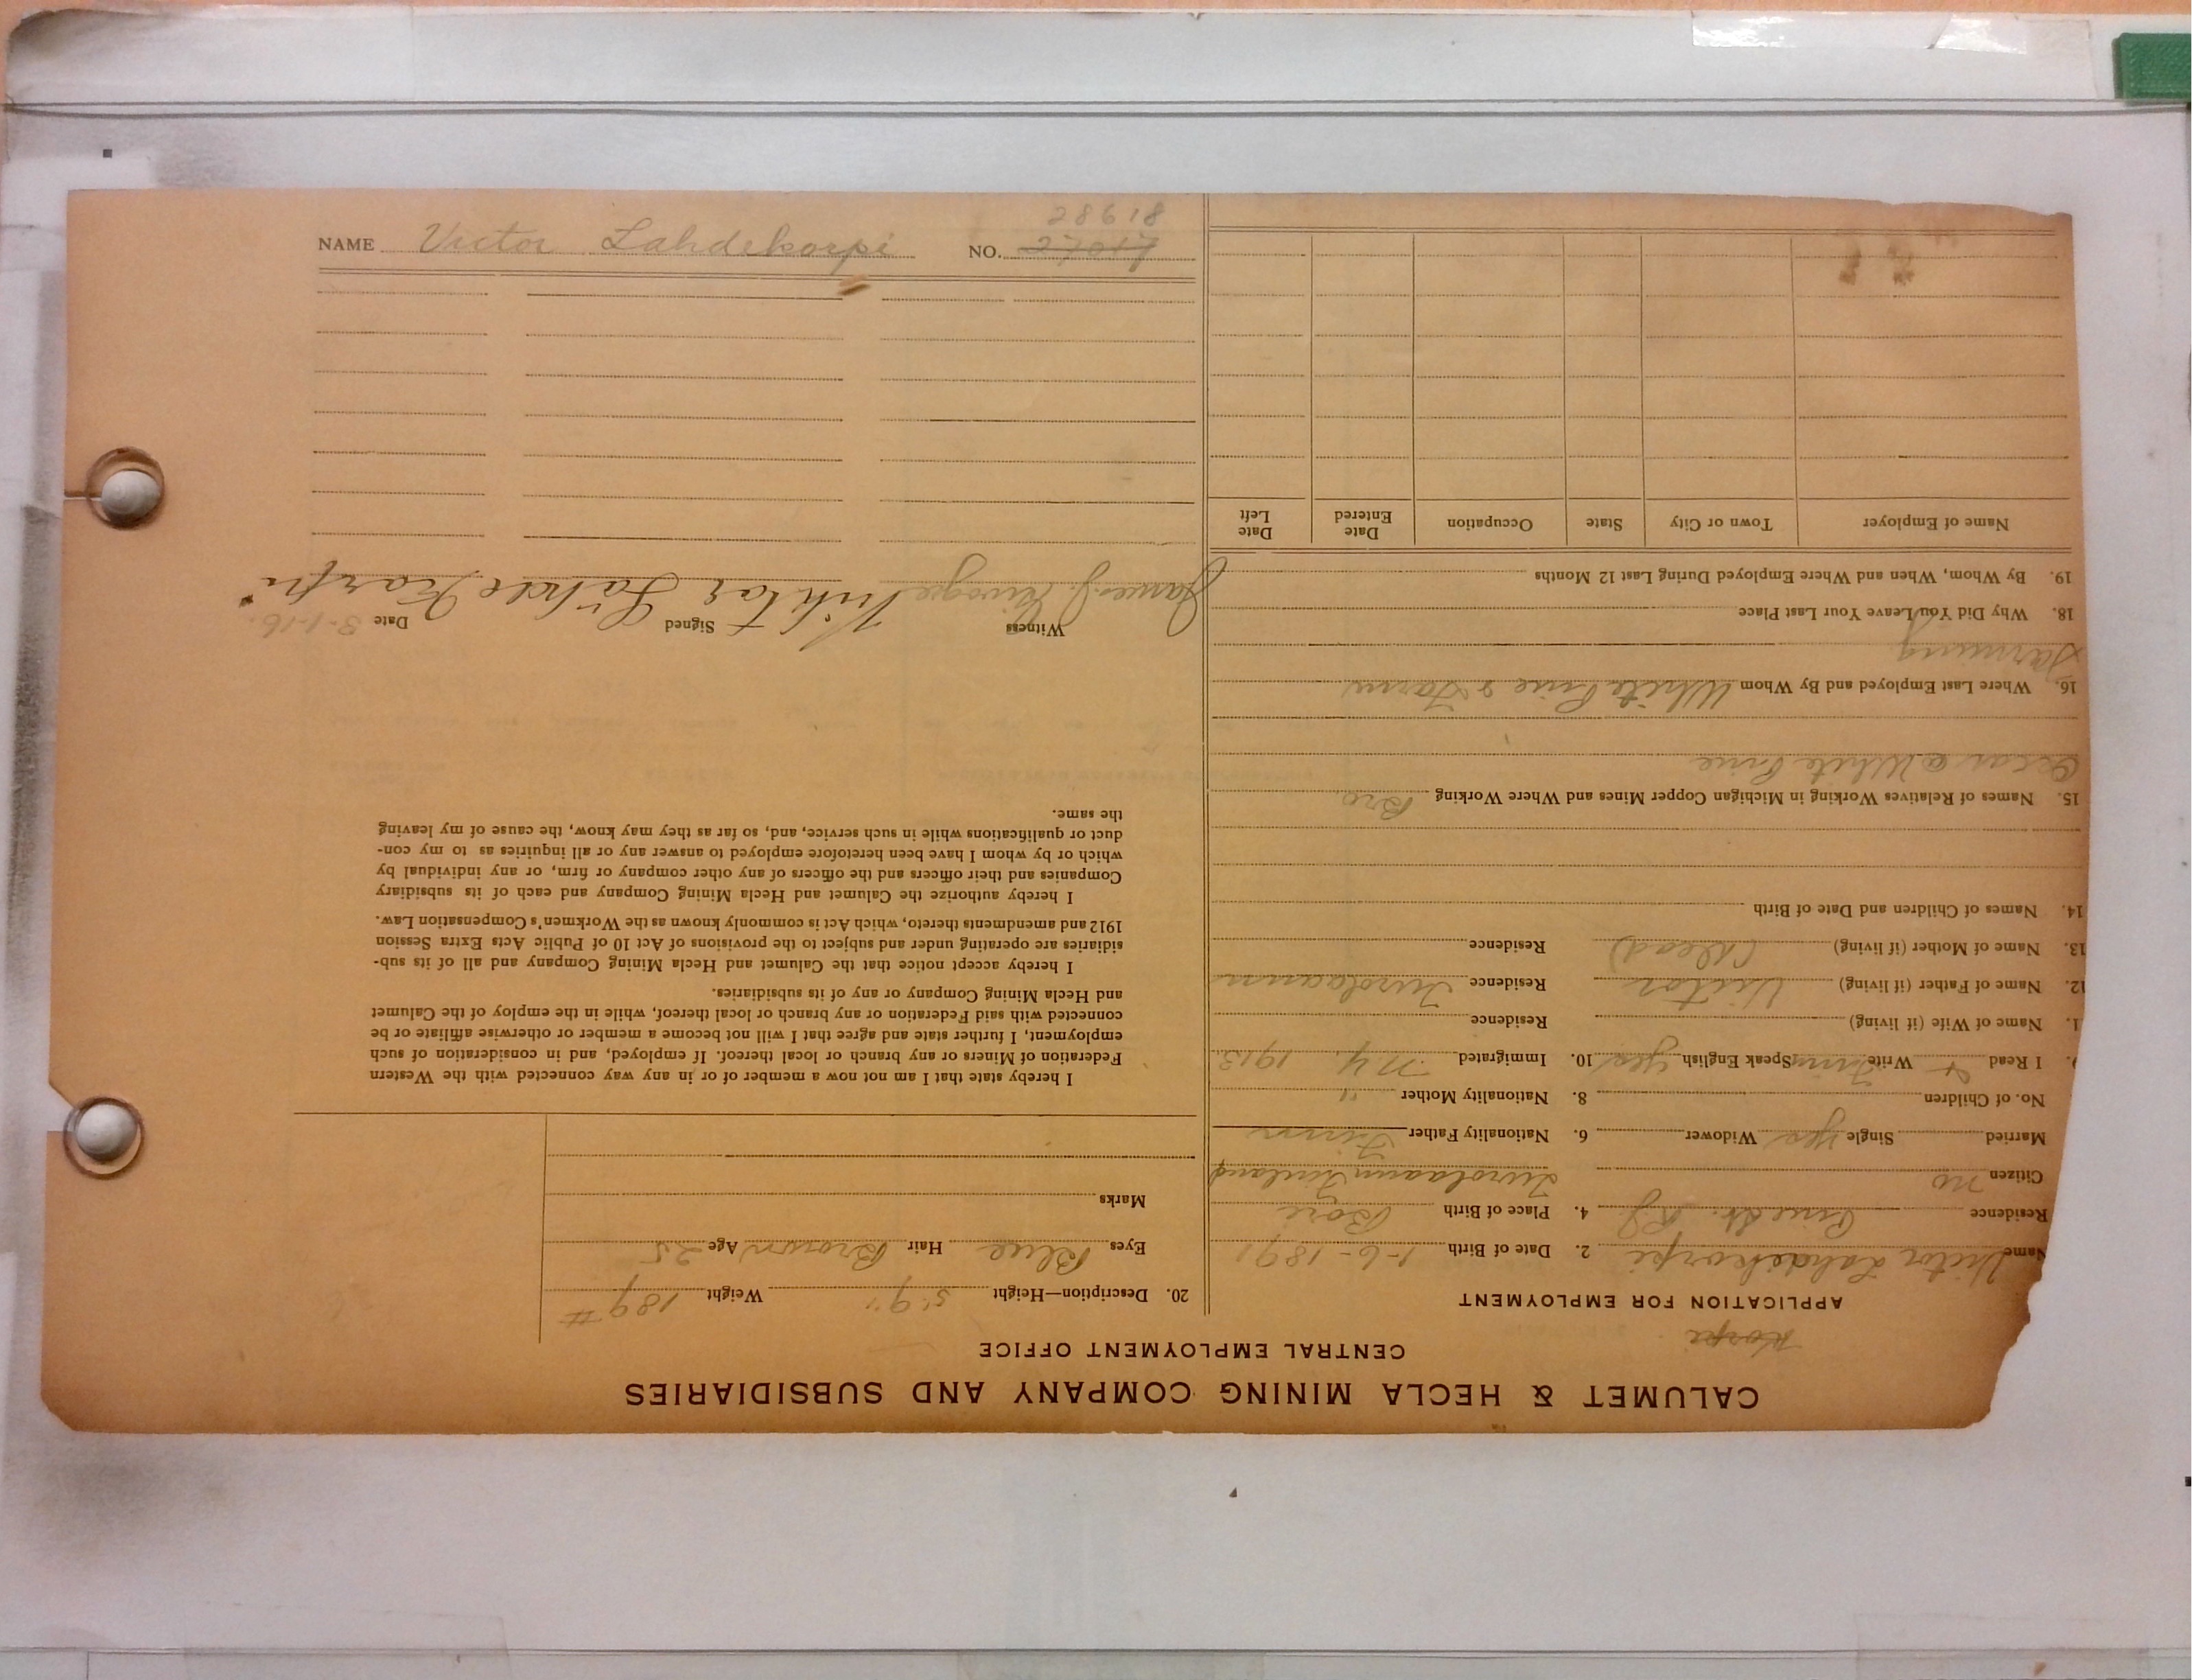 CALUMET & HECLA MINING COMPANY AND SUBSIDIARIES
CENTRAL EMPLOYMENT OFFICE
APPLICATION FOR EMPLOYMENT
Name Victor Lahdekorpi 2. Date of Birth 1-6-1891
Residence Pine St. 4. Place of Birth
Citizen no Finland
Married Single yes Widower 6. Nationality Father Finn
No. of Children 8. Nationality Mother "
9. I Read + Write Finn Speak English yes 10. Immigrated N.Y. 1913
1. Name of Wife (if living) Residence
12. Name of Father (if living) Victor Residence
13. Name of Mother (if living) (dead) Residence
14. Names of Children and Date of Birth
15. Names of Relatives Working in Michigan Copper Mines and Where Working Bro.
Oscar @ White Pine
16. Where Last Employed and By Whom White Pine & Farm
Farming
18. Why Did You Leave Your Last Place
19. By Whom, When and Where Employed During Last 12 Months
Name of Employer Town or City State Occupation Date Entered Date Left
20. Description—Height 5' 9" Weight 189 #
Eyes Blue Hair Brown Age 25
Marks
I hereby state that I am not now a member of or in any way connected with the Western
Federation of Miners or any branch or local thereof. If employed, and in consideration of such
employment, I further state and agree that I will not become a member or otherwise affiliate or be
connected with said Federation or any branch or local thereof, while in the employ of the Calumet
and Hecla Mining Company or any of its subsidiaries.
I hereby accept notice that the Calumet and Hecla Mining Company and all of its sub-
sidiaries are operating under and subject to the provisions of Act 10 of Public Acts Extra Session
1912 and amendments thereto, which Act is commonly known as the Workmen's Compensation Law.
I hereby authorize the Calumet and Hecla Mining Company and each of its subsidiary
Companies and their officers and the officers of any other company or firm, or any individual by
which or by whom I have been heretofore employed to answer any or all inquiries as to my con-
duct or qualifications while in such service, and, so far as they may know, the cause of my leaving
the same.
Witness Signed Date 3-1-16.
James J. Vihtor Lähde Korpi
28618
NAME Victor Lahdekorpi NO. 27017